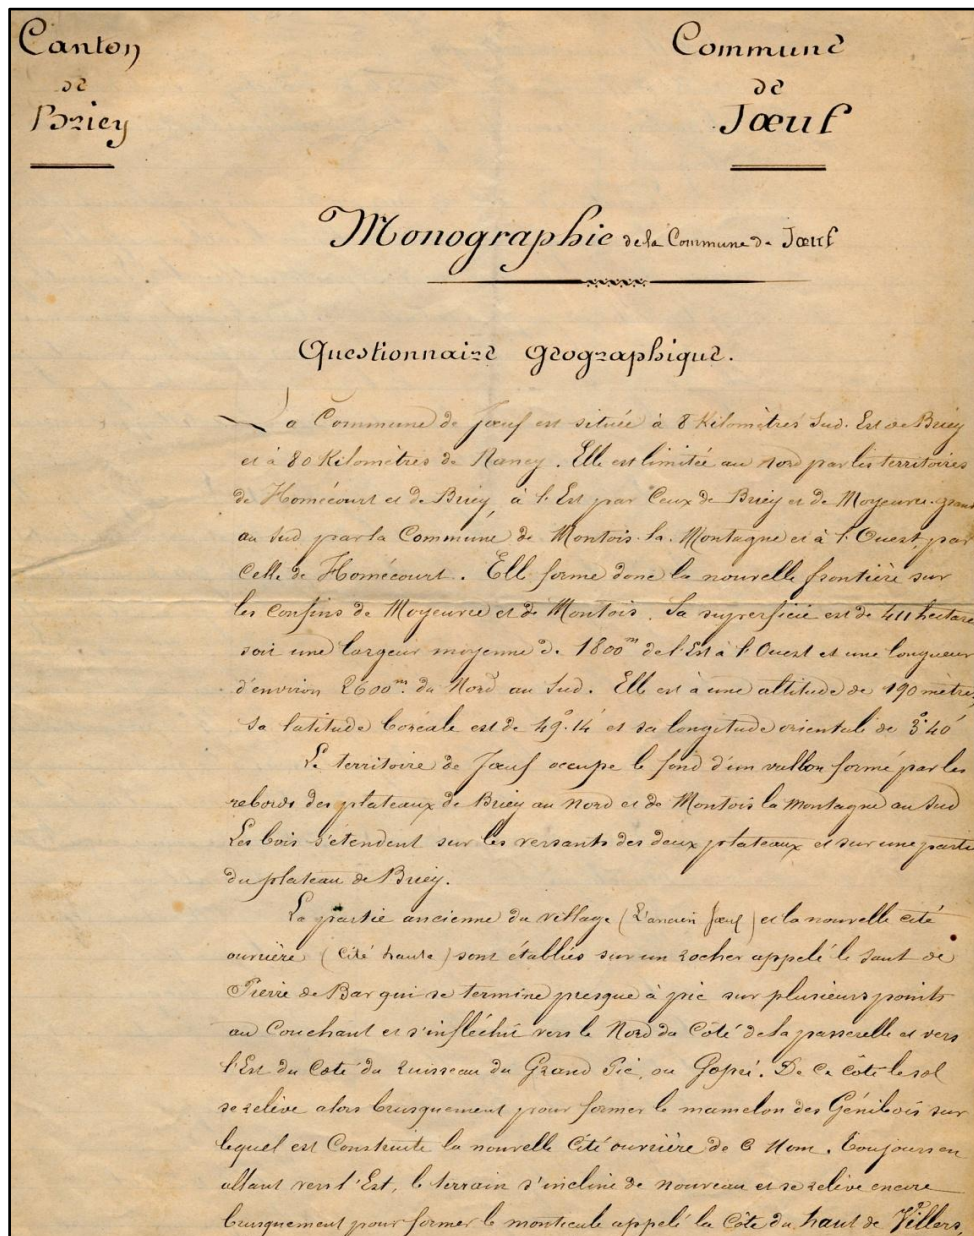 Canton
de
Briey
Commune
de
Jœuf
Monographie de la Commune de Jœuf
Questionnaire Géographique.
La Commune de Jœuf est située à 8 Kilomètres Sud-Est de Briey
et à 80 Kilomètres de Nancy. Elle est limitée au Nord par les territoires
de Homécourt et de Briey, à l'Est par Ceux de Briey et de Moyeuvre-grand
au Sud par la Commune de Montois-la-Montagne et à l'Ouest, par
Celle de Homécourt. Ell forme donc la nouvelle frontière sur
les confins de Moyeuvre et de Montois. Sa superficie est de 411 hectares
soit une largeur moyenne de 1800m de l'Est à l'Ouest et une longueur
d'environ 2600m. du Nord au Sud. Elle est à une altitude de 190 mètres,
sa latitude boréale est de 49°.14' et sa longitude orientale de 3°.40'
Le territoire de Jœuf occupe le fond d'un vallon formé par les
rebords des plateaux de Briey au Nord et de Montois la Montagne au Sud
Les bois s'étendent sur les versants des deux plateaux et sur une partie
du plateau de Briey.
La partie ancienne du village (L'ancien Jœuf) et la nouvelle cité
ouvrière (Cité haute) sont établies sur un rocher appelé le Saut de
Pierre de Bar qui se termine presque à pic sur plusieurs points
au Couchant et s'infléchit vers le Nord du Côté de la passerelle et vers
l'Est du Côté du Ruisseau du Grand Pic, ou Gopré. De Ce côté le sol
se relève alors brusquement pour former le mamelon des Génibois sur
lequel est Construite la nouvelle Cité ouvrière de ce Nom. Toujours en
allant vers l'Est, le terrain s'incline de nouveau et se relève encore
brusquement pour former le monticule appelé la Côte du haut de Villers,